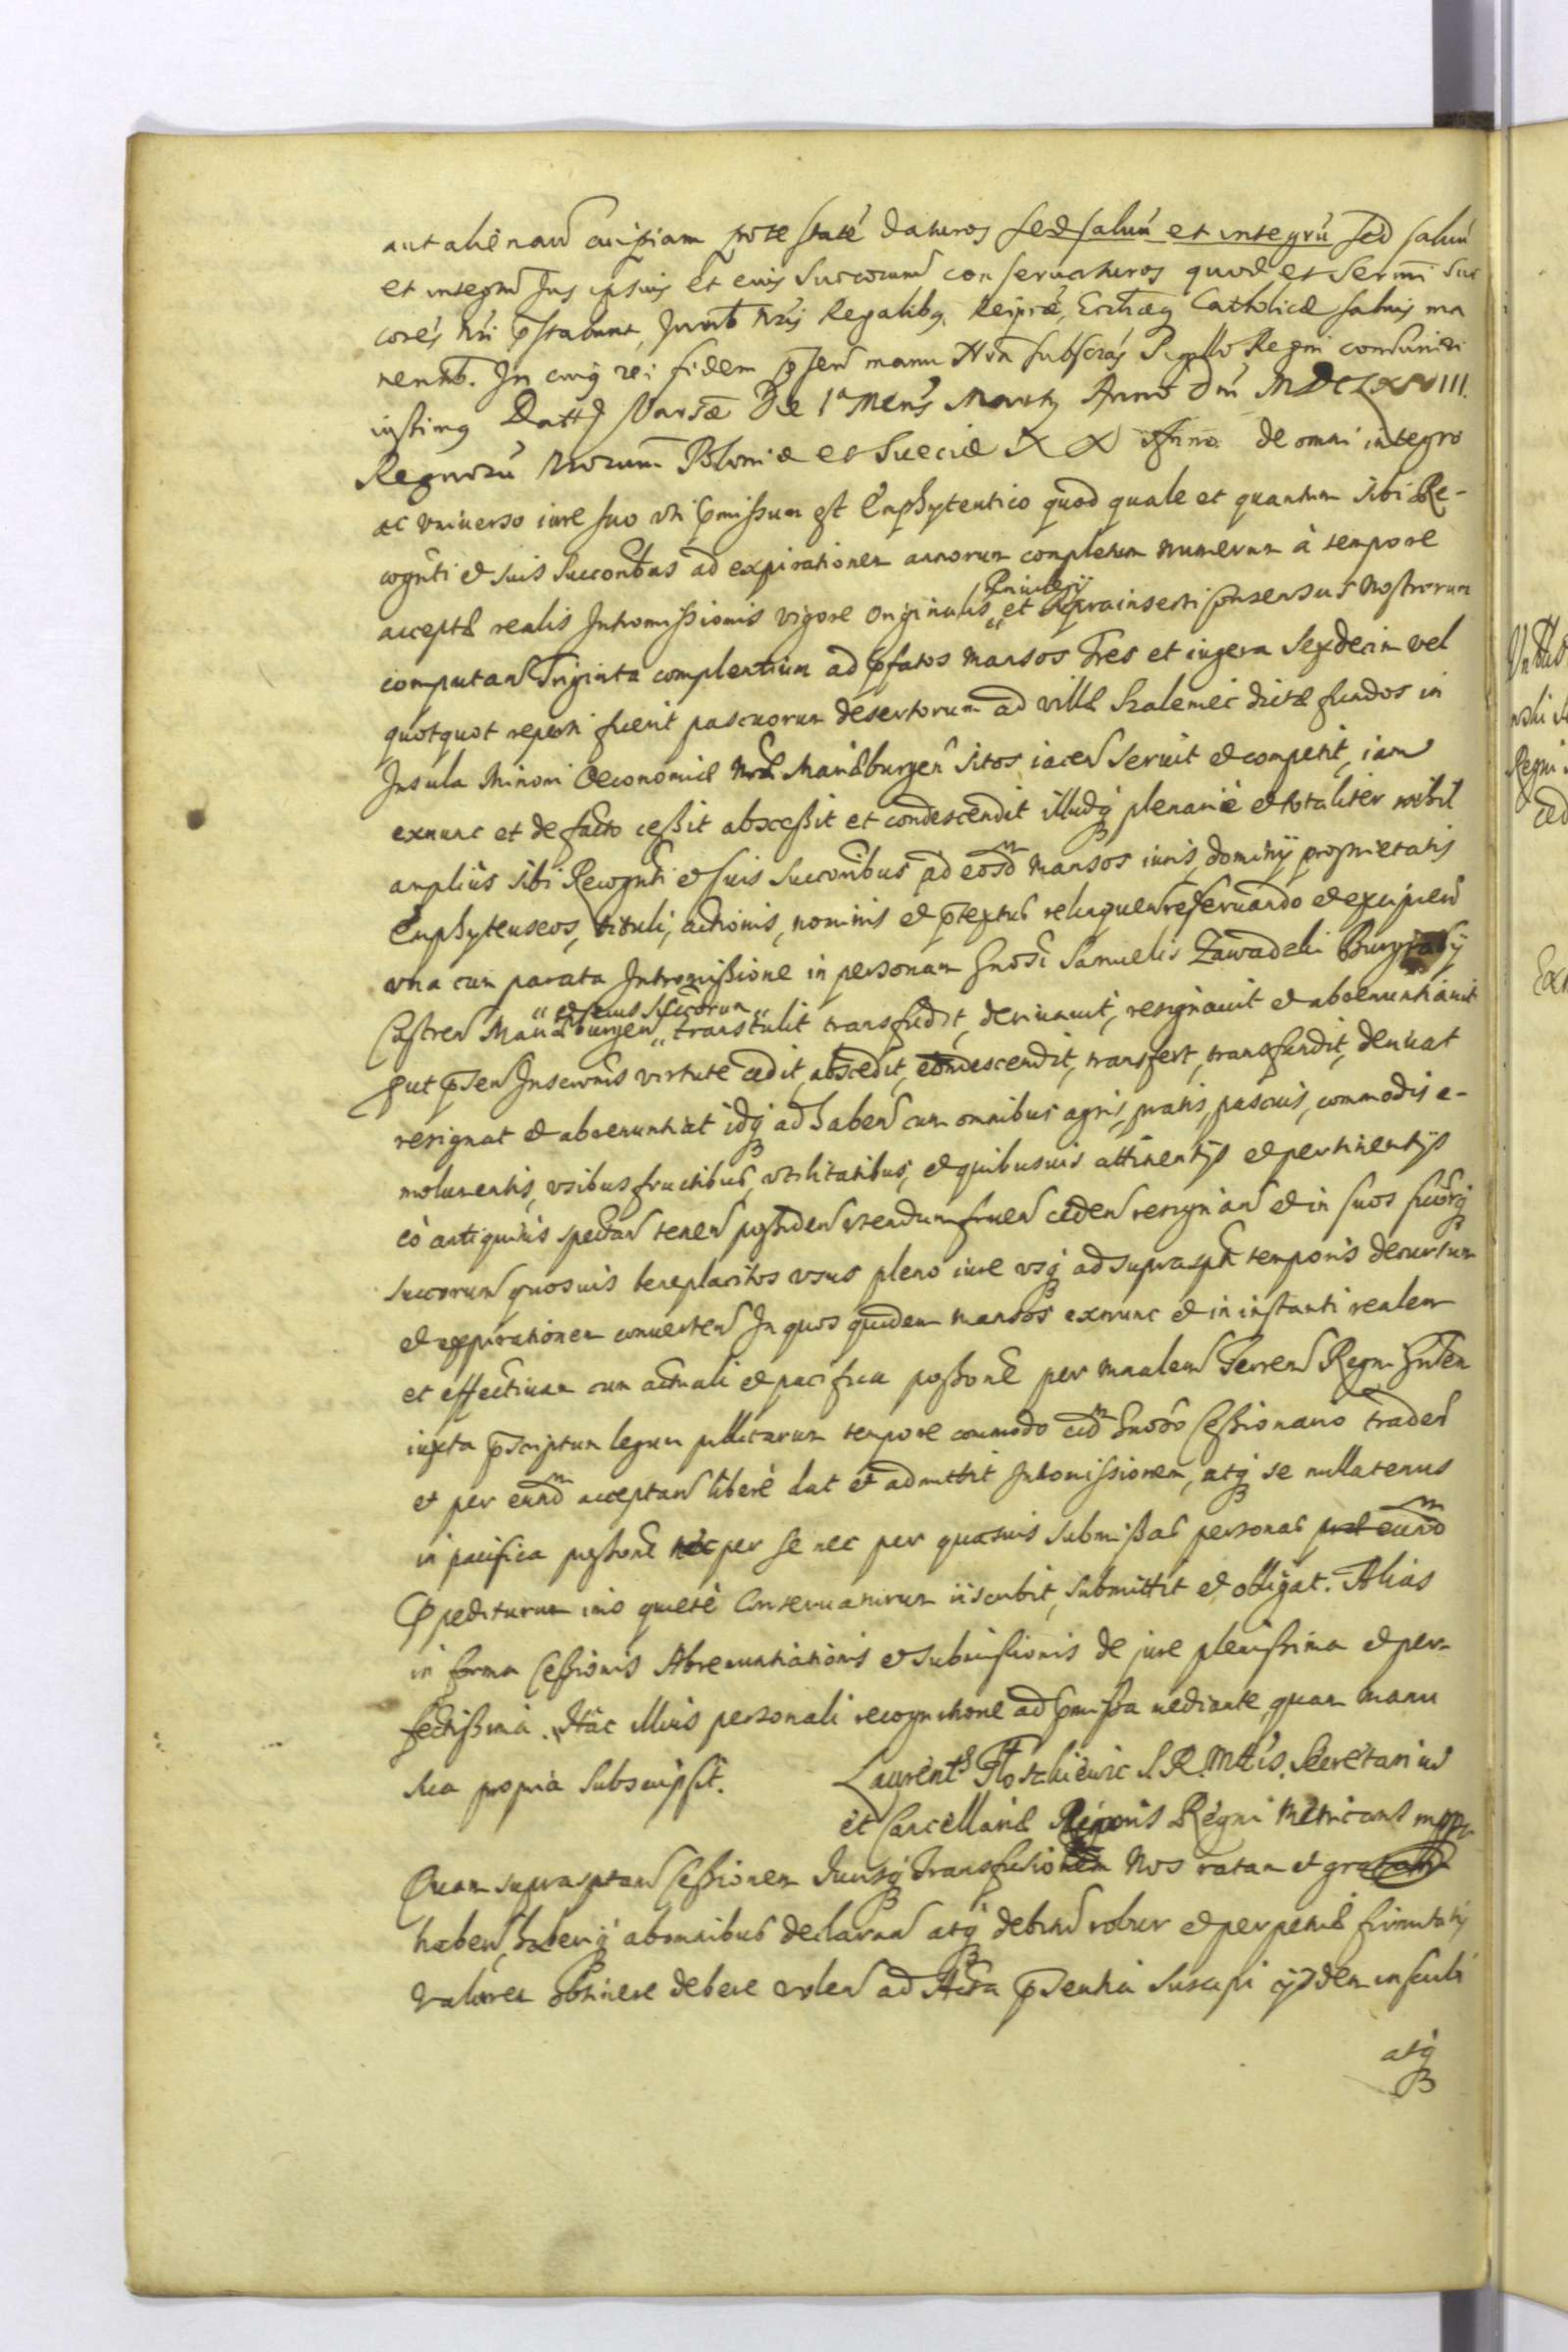 aut alienand cuipiam potestate daturos sed salvu et integru sed salvu
et integru Jus ipsius et eius Succorum conservaturos quod et Sermi Suc
cores nri pstabunt, Jurib nris Regalibq, Reiprae, Ecclaeq Catholicae salvis ma
nentib. In cuiq rei fidem psen manu Nra subscras Sigillo Regni communiri
iussimq Datt Varsae Die 1a Mens Martij Anno Dni MDCLXVIII
Regnoru Nrorum Poloniae et Sueciae XX Anno de omni integro
ac universo iure suo uti pmissum est Emphyteutico quod quale et quantum sibi Re-
cognti et suis Succoribus ad expirationem annorum completum numerum à tempore
acceptae realis Intromissionis vigore Originalis Privilegij et suprainserti consensus Nostrorum
computan Triginta complentium ad pfatos mansos Tres et iugera sexdecim vel
quotquot reperti fuerit pascuorum desertorum ad villae Szalemeic dictae fundos in
Insula Minori Oeconomiae Nrae Mariaeburgen sitos iacen servit et competit, iam
exnunc et de facto cessit abscessit et condescendit illudq plenarie et totaliter nihil
amplius sibi Recognti et suis Succoribus ad eosdm mansos iuris, dominij proprietatis
Emphyteuseos, tituli, actionis, nominis et ptextus relinquen reservando et excipien
una cum parata Intromissione in personam Gnosi Samuelis Zawadzki Burgrabij
Castren Mariaeburgen et eius Succorum transtulit transfudit, derivavit, resignavit et abrenuntiavit
put psen Inscronis virtute cedit, abscedit, condescendit, transfert, transfundit, derivat
resignat et abrenuntiat idq ad haben cum omnibus agris, pratis, pascuis, commodis e-
molumentis, usibus fructibus, utilitatibus, et quibusvis attinentijs et pertinentijs
eò antiquitus spectan tenen possiden utendum fruen ceden resignan et in suos suorq
succorum quosvis beneplacitos usus pleno iure usq ad suprasptt temporis decursum
et expirationem converten In quos quidem mansos exnunc et in instanti realem
et effectivam cum actuali et pacifica possone per mnalem Terren Regni Gnlem
iuxta pscriptum legum publicarum tempore commodo eidm Gnoso Cessionario traden
et per eundm acceptan liberè dat et admittit Intromissionem, atq se nullatenus
in pacifica possone nec per se nec per quasvis submissas personas eundm
Ppediturum imo quietè Conservaturum iiscribit, submittit et obligat. Alias
in forma Cessionis Abrenuntiationis et submissionis de jure plenissima et per-
fectissima. Hac illius personali recognitione ad pmissa mediante, quam manu
sua propria subscripsit. Laurents S.R.Mttis. Secretarius
et Cancellariae Regni Metricans mppr
Quam suprasptam Cessionem Jurisq Transfusionem Nos ratam et gratam
haben, haberiq ab omnibus declaran atq debitu robur et perpetuae firmitatis
valorem obtinere debere volen ad Acta psentia suscipi ijsdem inscribi
atq